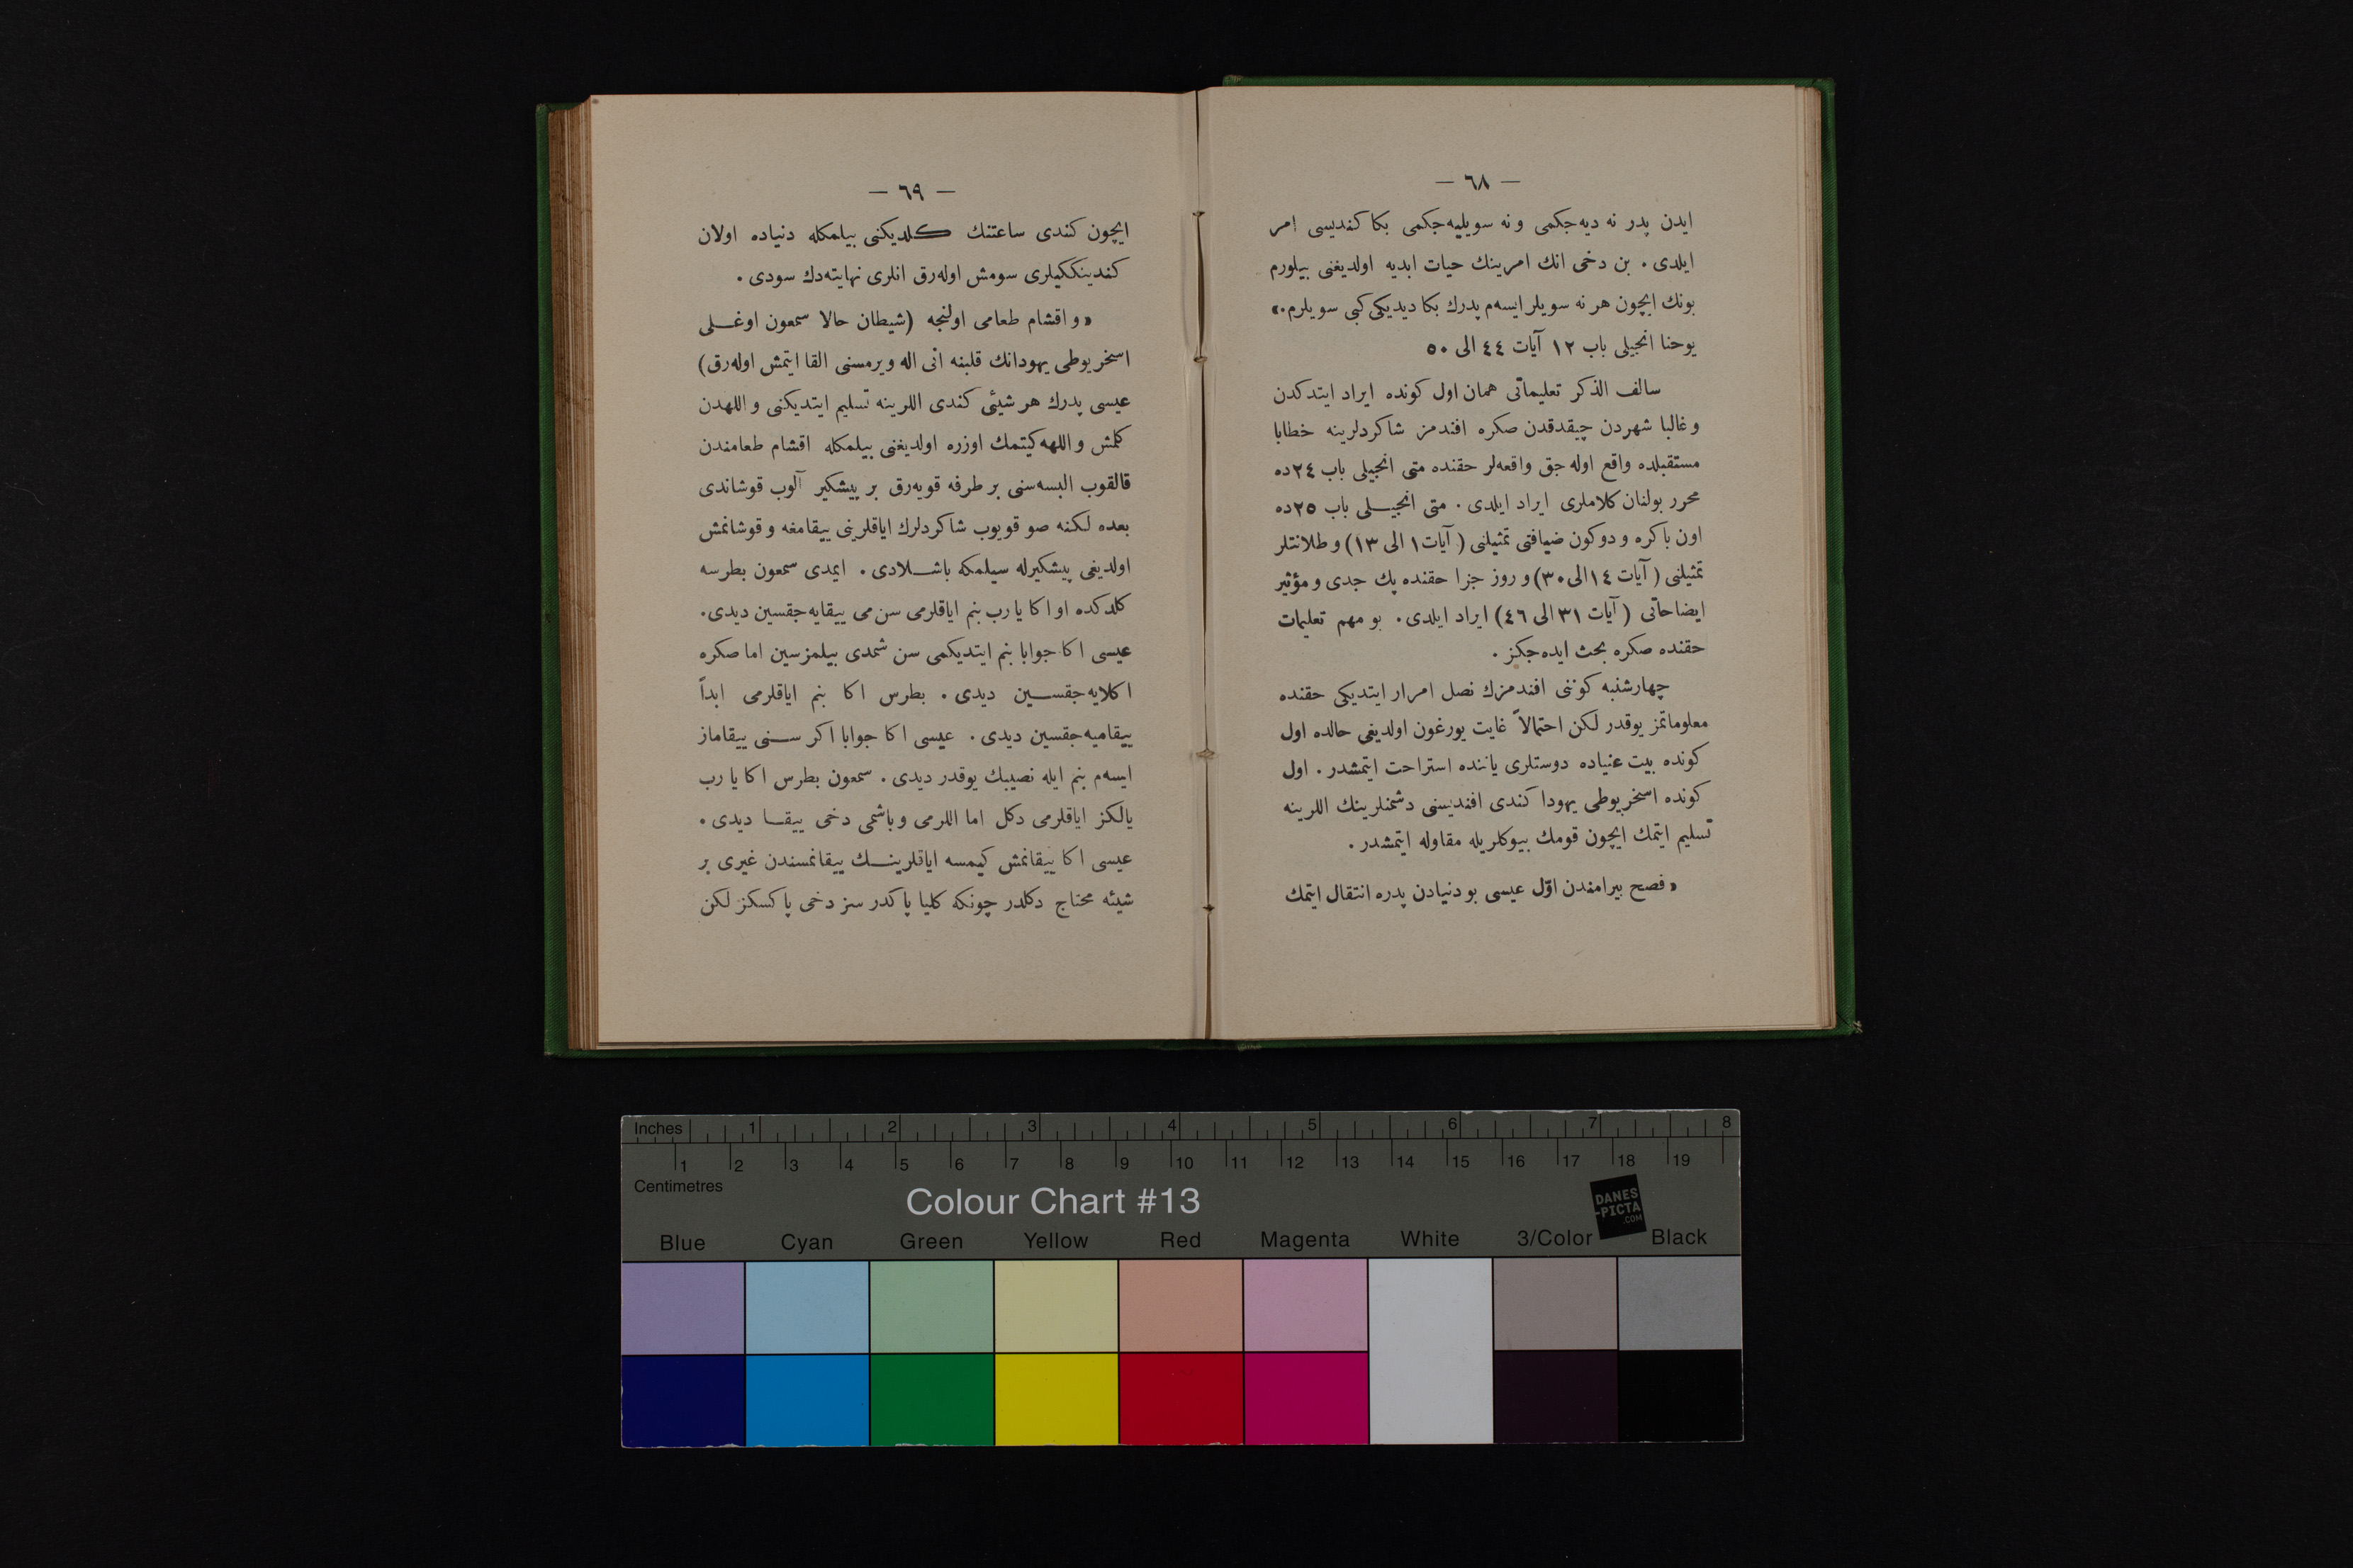 — ٦٨ —
ایدن پدر نه دیه‌جكمی و نه سویلیه‌جكمی بكا كندیسی امر
ایلدی . بن دخی انك امرینك حیات ابدیه اولدیغنی بیلورم
بونك ایچون هر نه سویلر ایسه‌م پدرك بكا دیدیكی كبی سویلرم .»
یوحنا انجیلی باب ١٢ آیات ٤٤ الی ٥٠
سالف الذكر تعلیماتی همان اول كونده ایراد ایتدكدن
و غالبا شهردن چیقدقدن صكره افندمز شاكردلرینه خطابا
مستقبلده واقع اوله جق واقعه‌لر حقنده متی انجیلی باب ٢٤ ده
محرر بولنان كلاملری ایراد ایلدی . متی انجیـلی باب ٢٥ ده
اون باكره و دوكون ضیافتی تمثیلنی ( آیات ١ الی ١٣ ) و طلانتلر
تمثیلنی ( آیات ١٤ الی ٣٠ ) و روز جزا حقنده پك جدی و مؤثیر
ایضاحاتی ( آیات ٣١ الی ٤٦ ) ایراد ایلدی . بو مهم تعلیمات
حقنده صكره بحث ایده‌جكز .
چهارشنبه كوننی افندمزك نصل امرار ایتدیكی حقنده
معلوماتمز یوقدر لكن احتمالاً غایت یورغون اولدیغی حالده اول
كونده بیت عنیاده دوستلری یاننده استراحت ایتمشدر . اول
كونده اسخریوطی یهودا كندی افندیسنی دشمنلرینك اللرینه
تسلیم ایتمك ایچون قومك بیوكلریله مقاوله ایتمشدر .
« فصح بیرامندن اوّل عیسی بو دنیادن پدره انتقال ایتمك
— ٦٩ —
ایچون كندی ساعتنك كلدیكنی بیلمكله دنیاده اولان
كندینككیلری سومش اوله‌رق انلری نهایته‌دك سودی .
« و اقشام طعامی اولنجه (شیطان حالا سمعون اوغـلی
اسخریوطی یهودانك قلبنه انی اله ویرمسنی القا ایتمش اوله‌رق)
عیسی پدرك هر شیئی كندی اللرینه تسلیم ایتدیكنی و اللهدن
كلمش و اللهه كیتمك اوزره اولدیغنی بیلمكله اقشام طعامندن
قالقوب البسه‌سنی بر طرفه قویه‌رق بر پیشكیر آلوب قوشاندی
بعده لكنه صو قویوب شاكردلرك ایاقلرینی ییقامغه و قوشانمش
اولدیغی پیشكیرله سیلمكه باشـلادی . ایمدی سمعون بطرسه
كلدكده او اكا یا رب بنم ایاقلرمی سن می ییقایه‌جقسین دیدی .
عیسی اكا جوابا بنم ایتدیكمی سن شمدی بیلمزسین اما صكره
اكلایه‌جقســین دیدی . بطرس اكا بنم ایاقلرمی ابداً
ییقامیه‌جقسین دیدی . عیسی اكا جوابا اكر سـنی ییقاماز
ایسه‌م بنم ایله نصیبك یوقدر دیدی . سمعون بطرس اكا یا رب
یالكز ایاقلرمی دكل اما اللرمی و باشمی دخی ییقـا دیدی .
عیسی اكا ییقانمش كیمسه ایاقلرینــك ییقانمسندن غیری بر
شیئه محتاج دكلدر چونكه كلیا پاكدر سز دخی پاكسكز لكن
Inches 1 2 3 4 5 6 7 8
1 2 3 4 5 6 7 8 9 10 11 12 13 14 15 16 17 18 19
Centimetres
Colour Chart #13
DANES
-PICTA
.COM
Blue Cyan Green Yellow Red Magenta White 3/Color Black